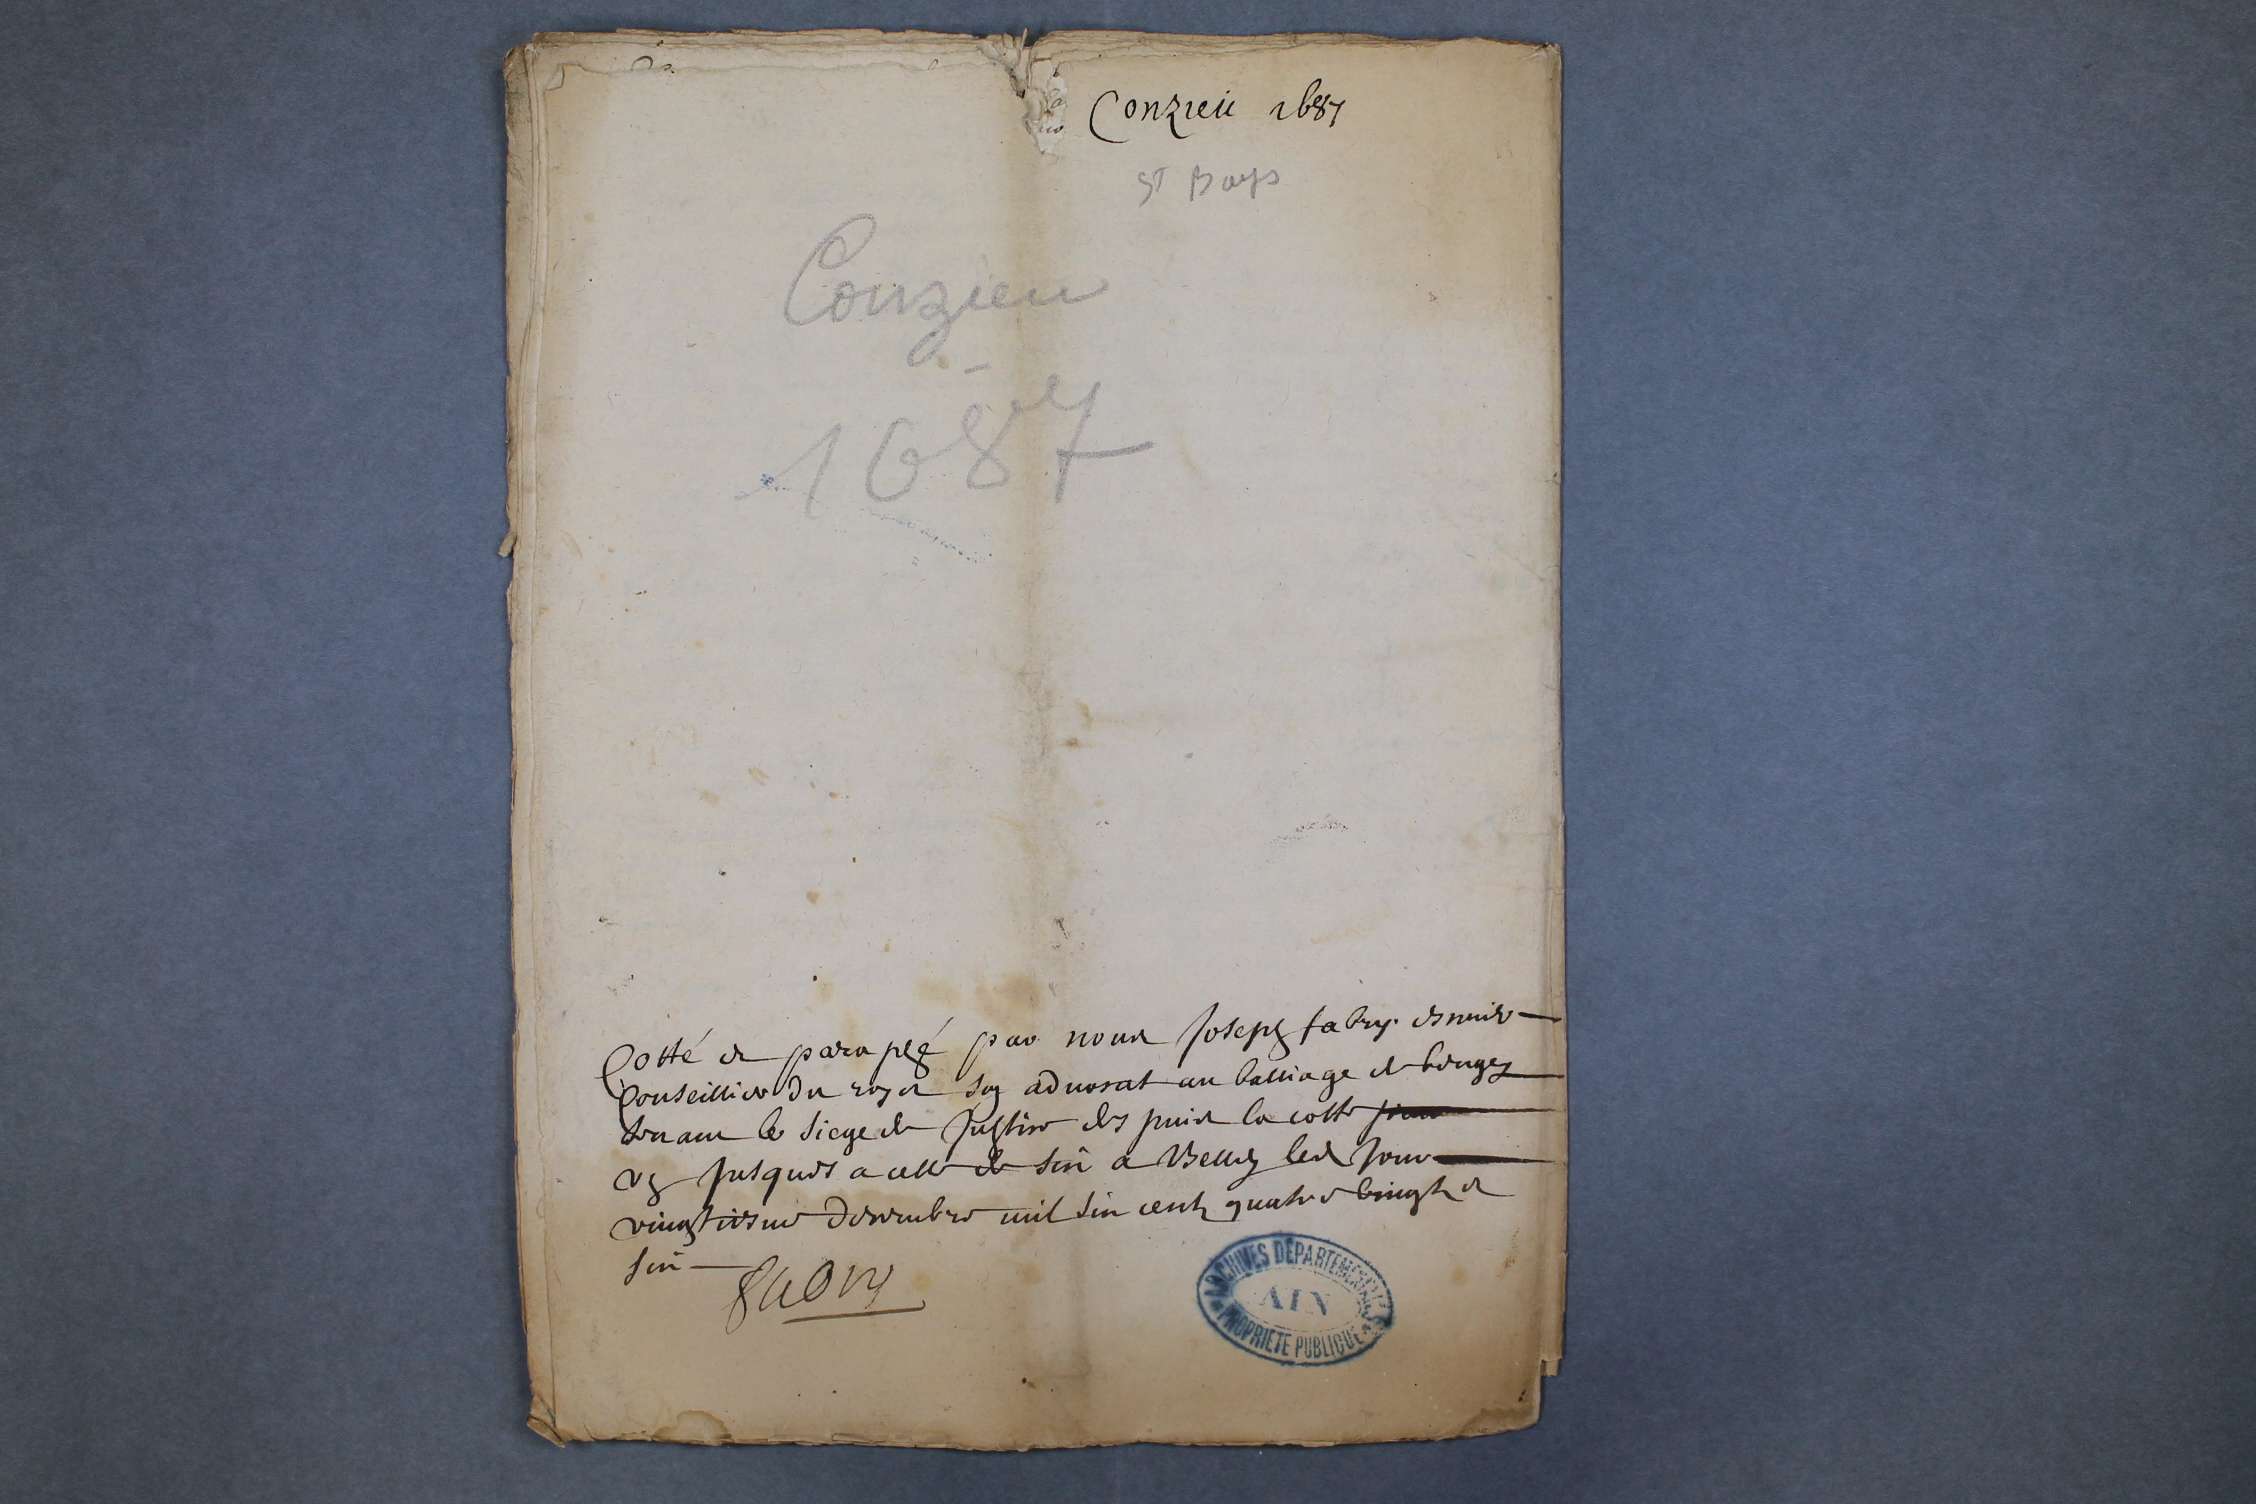 Conzieu 1687
St Boys
Conzieu
-
1687
Cotté et paraphé par nous Joseph fabry escuier
Conseillier du roy et son advocat au balliage de beugey
tenant le siege de Justice des puis la cotte
un Jusques a celle de six a Belley le Jour
vingtiesme decembre mil six cents quatre vingt et
six
fabry
ARCHIVES DÉPARTEMENTALES
AIN
PROPRIÉTÉ PUBLIQUE